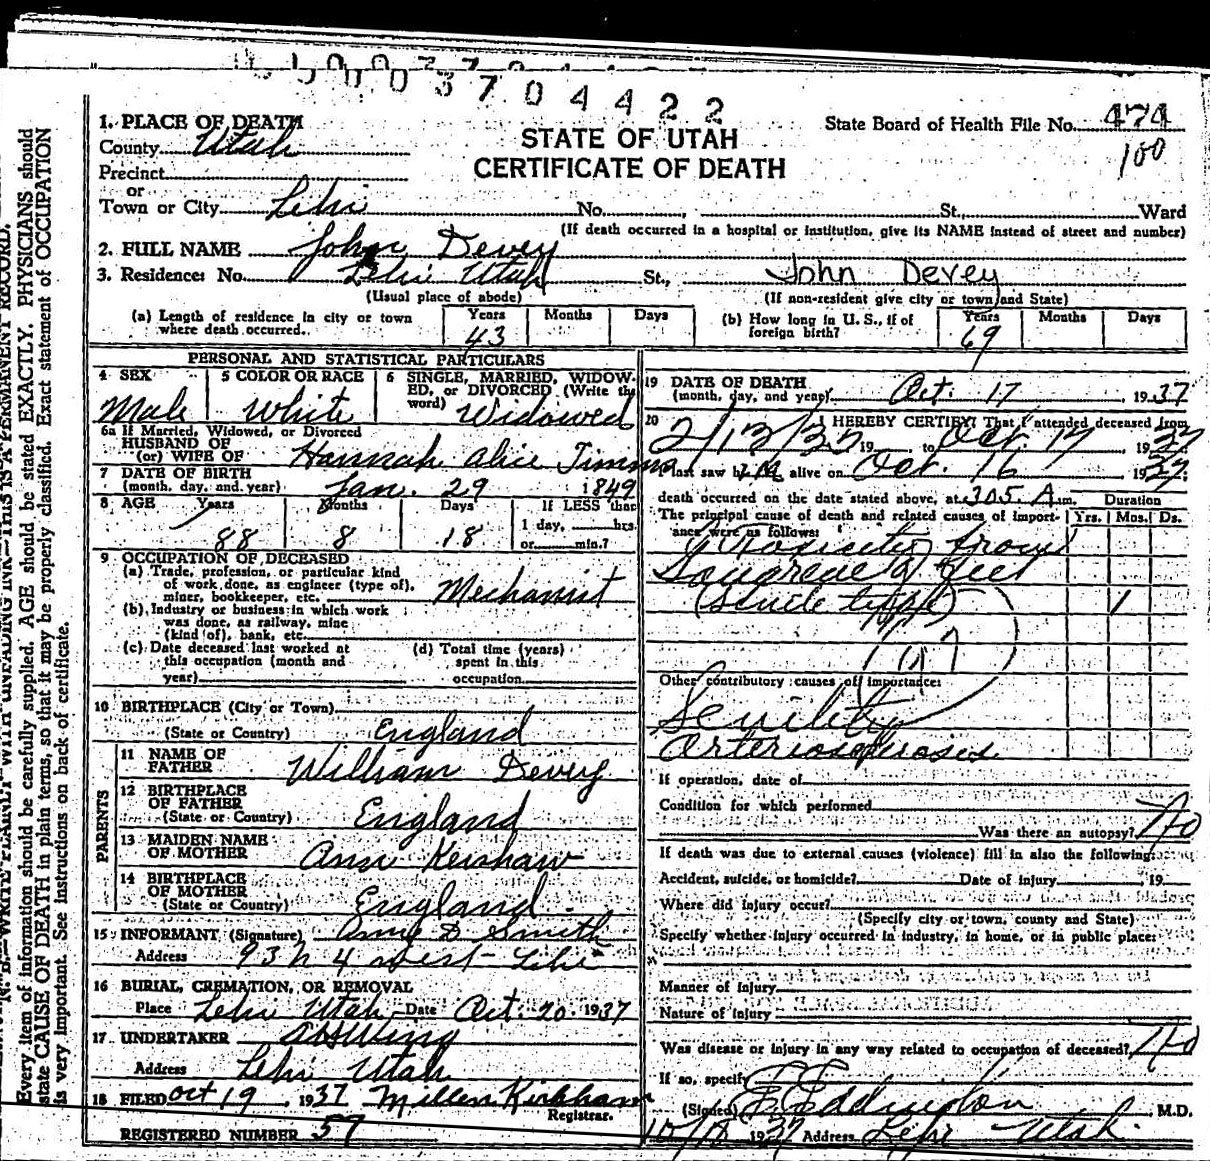 0003704422
1. PLACE OF DEATH
County Utah
Precinct
or
Town or City Lehi No. St., Ward
STATE OF UTAH
CERTIFICATE OF DEATH
State Board of Health File No. 474
100
(If death occurred in a hospital or institution, give its NAME instead of street and number)
2. FULL NAME John Devey
3. Residence: No. Lehi Utah St., John Devey
(Usual place of abode) (If non-resident give city or town and State)
(a) Length of residence in city or town where death occurred. Years 43 Months Days
(b) How long in U. S., if of foreign birth? Years 69 Months Days
PERSONAL AND STATISTICAL PARTICULARS
4 SEX Male
5 COLOR OR RACE White
6 SINGLE, MARRIED, WIDOWED, or DIVORCED (Write the word) Widowed
6a If Married, Widowed, or Divorced
HUSBAND OF
(or) WIFE OF Hannah Alice Timms
7 DATE OF BIRTH
(month, day, and year) Jan. 29 1849
8 AGE Years 88 Months 8 Days 18 If LESS than 1 day, hrs. or min.?
9 OCCUPATION OF DECEASED
(a) Trade, profession, or particular kind of work done, as engineer (type of), miner, bookkeeper, etc. Mechanist
(b) Industry or business in which work was done, as railway, mine (kind of), bank, etc.
(c) Date deceased last worked at this occupation (month and year)
(d) Total time (years) spent in this occupation
10 BIRTHPLACE (City or Town)
(State or Country) England
PARENTS
11 NAME OF FATHER William Devey
12 BIRTHPLACE OF FATHER
(State or Country) England
13 MAIDEN NAME OF MOTHER Ann Kershaw
14 BIRTHPLACE OF MOTHER
(State or Country) England
15 INFORMANT (Signature) D Smith
Address 93 N 4 West Lehi
16 BURIAL, CREMATION, OR REMOVAL
Place Lehi Utah Date Oct. 20 1937
17 UNDERTAKER Wing
Address Lehi Utah
18 FILED Oct 19, 1937 Kirkham
Registrar.
REGISTERED NUMBER 57
19 DATE OF DEATH
(month, day, and year) Oct. 17, 1937
20 I HEREBY CERTIFY: That I attended deceased from
2/13/35 19 to Oct. 17, 1937
last saw him alive on Oct. 16 1937
death occurred on the date stated above, at 3:05 A.m. Duration
The principal cause of death and related causes of importance were as follows: Yrs. Mos. Ds.
Toxicity from
Gangrene of feet
(Senile type) 1
Other contributory causes of importance:
Senility
Arteriosclerosis
If operation, date of
Condition for which performed
Was there an autopsy? No
If death was due to external causes (violence) fill in also the following:
Accident, suicide, or homicide? Date of injury 19
Where did injury occur?
(Specify city or town, county and State)
Specify whether injury occurred in industry, in home, or in public place:
Manner of Injury
Nature of Injury
Was disease or injury in any way related to occupation of deceased? No
If so, specify
(Signed) Eddington, M.D.
10/18 1937 Address Lehi Utah.
Every item of information should be carefully supplied. AGE should be stated EXACTLY. PHYSICIANS should
state CAUSE OF DEATH in plain terms, so that it may be properly classified. Exact statement of OCCUPATION
is very important. See instructions on back of certificate.
WRITE PLAINLY WITH UNFADING INK—THIS IS A PERMANENT RECORD.